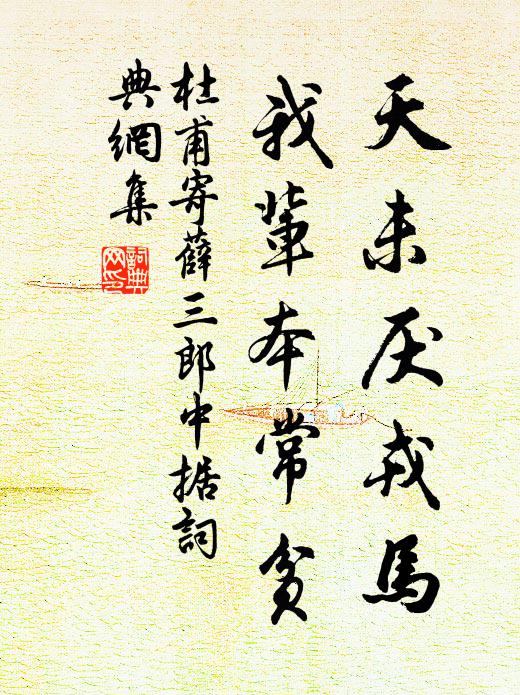 天未厌戎马
我辈本常贫
杜甫寄薛三郎中据詞
典網集
詞典
网印